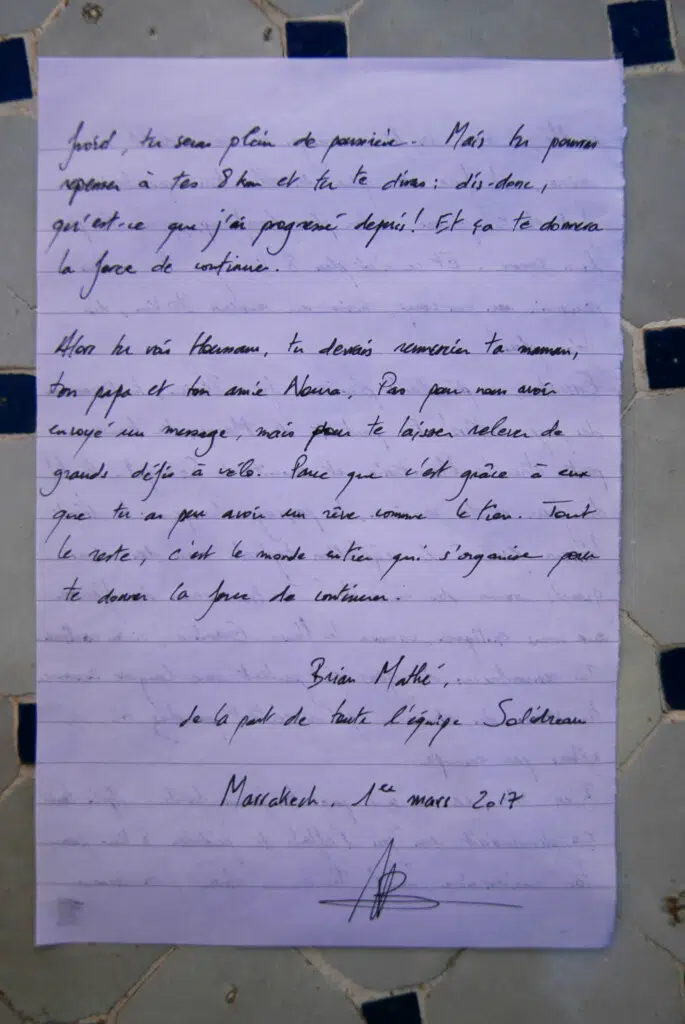 froid, tu seras plein de poussière. Mais tu pourras
repenser à tes 8 km et tu te diras : dis-donc,
qu'est-ce que j'ai progressé depuis ! Et ça te donnera
la force de continuer.
Alors tu vois Houmam, tu devrais remercier ta maman,
ton papa et ton amie Noura. Pas pour nous avoir
envoyé un message, mais pour te laisser relever de
grands défis à vélo. Parce que c'est grâce à eux
que tu as pu avoir un rêve comme le tien. Tout
le reste, c'est le monde entier qui s'organise pour
te donner la force de continuer.
Brian Mathé,
de la part de toute l'équipe Solidreau
Marrakech, 1er mars 2017